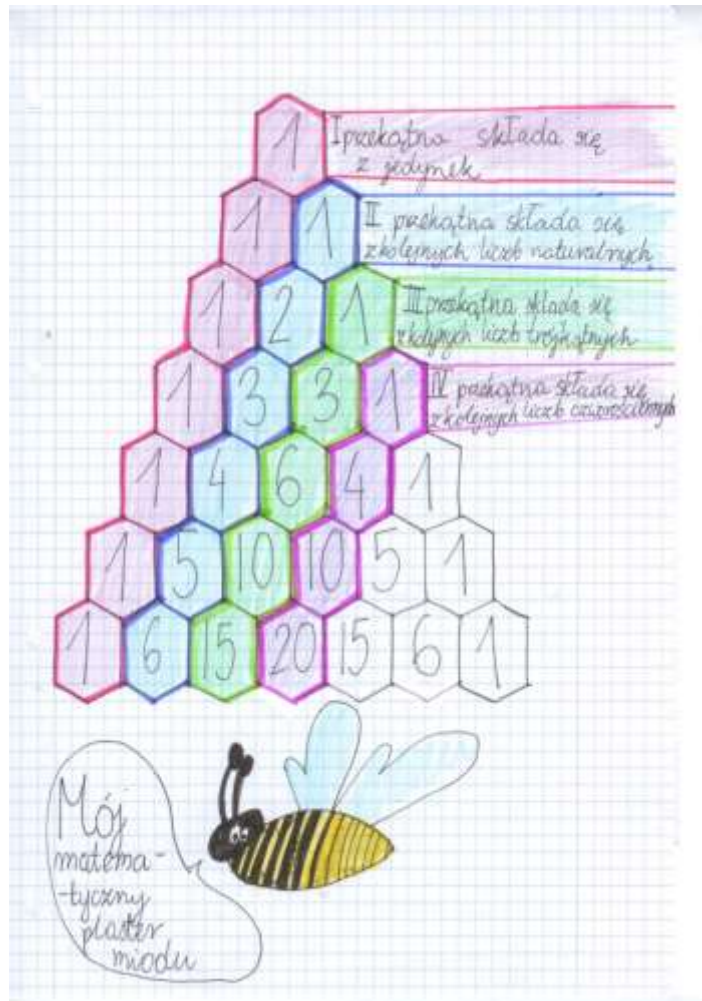 1
I przekątna składa się
z jedynek
1 1
II przekątna składa się
z kolejnych liczb naturalnych
1 2 1
III przekątna składa się
z kolejnych liczb trójkątnych
1 3 3 1
IV przekątna składa się
z kolejnych liczb czworościennych
1 4 6 4 1
1 5 10 10 5 1
1 6 15 20 15 6 1
Mój
matema-
-tyczny
plaster
miodu